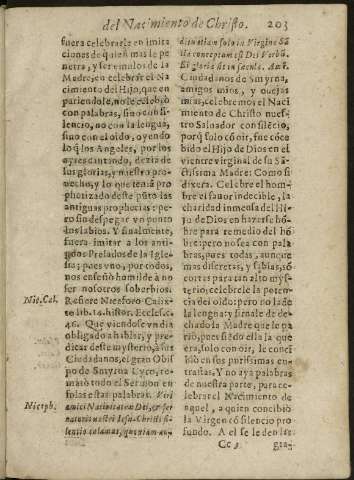 del Nacimiento de Christo. 203
fuera celebrarle en imita
ciones de quien mas le pe
netra, y ser emulos de la
Madre, en celebrar el Na
cimiento del Hijo, que en
pariendole, no le celebrò
con palabras, sino con si-
lencio, no con la lengua,
sino con el oìdo, oyendo
lo q̃ los Angeles, por los
ayres cantando, dezia de
sus glorias, y nuestro pro-
vecho, y lo que tenia pro
phetizado deste pũto las
antiguas prophecias; pe-
ro sin despegar vn punto
los labios. Y finalmente,
fuera imitar a los anti-
guos Prelados de la Igle-
sia; pues vno, por todos,
nos enseñò humilde à no
ser nosotros soberbios.
Nic. Cal.
Refiere Niceforo Calix-
to lib. 14. histor. Eccles. c.
46. Que viendose vn dia
obligado a hablar, y pre-
dicar deste mysterio, à sus
Ciudadanos, el gran Obis
po de Smyrna Cyro, re-
matò todo el Sermon en
solas estas palabras. Viri
Niceph.
amici Nativitatem Dei, & ser
natoris nostri Iesu-Christi si-
lentio colamus, quoniam au-
ditu etiam solo in Virgine Sã
cta conceptum est Dei Verbũ.
Ei gloria sit in sæcula. Am̃.
Ciudadanos de Smyrna,
amigos mios, y ouejas
mias, celebremos el Naci
miento de Christo nues-
tro Salvador con silẽcio,
porq̃ solo cõ oir, fue cõce
bido el Hijo de Dios en el
vientre virginal de su Sã-
ctissima Madre: Como si
dixera. Celebre el hom-
bre el fauor indecible, la
charidad inmensa del Hi-
jo de Dios en hazerse hõ-
bre para remedio del hõ
bre: pero no sea con pala
bras, pues todas, aunque
mas discretas, y sabias, sõ
cortas para tan alto mys-
terio; celebrele la poten-
cia del oìdo: pero no la de
la lengua; sirvale de de-
chado la Madre que le pa
riò, pues siẽdo ella la que
era, solo con oir, le conci
biò en sus purissimas en-
trañas. Y no aya palabras
de nuestra parte, para ce-
lebrar el Nacimiento de
aquel, a quien concibiò
la Virgen cõ silencio pro
fundo. A el se le den las
Cc 2 gra-